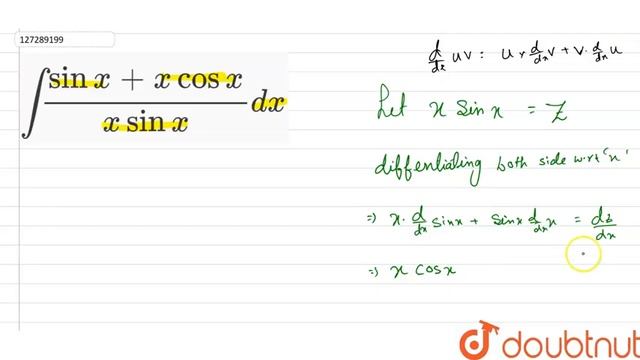 127289199
∫ sin x + x cos x / x sin x dx
d/dx uv = u × d/dx v + v · d/dx u
Let x sin x = Z
diffentialing both side w.r.t 'x'
=> x · d/dx sinx + sinx d/dx x = dz/dx
=> x cos x
doubtnut